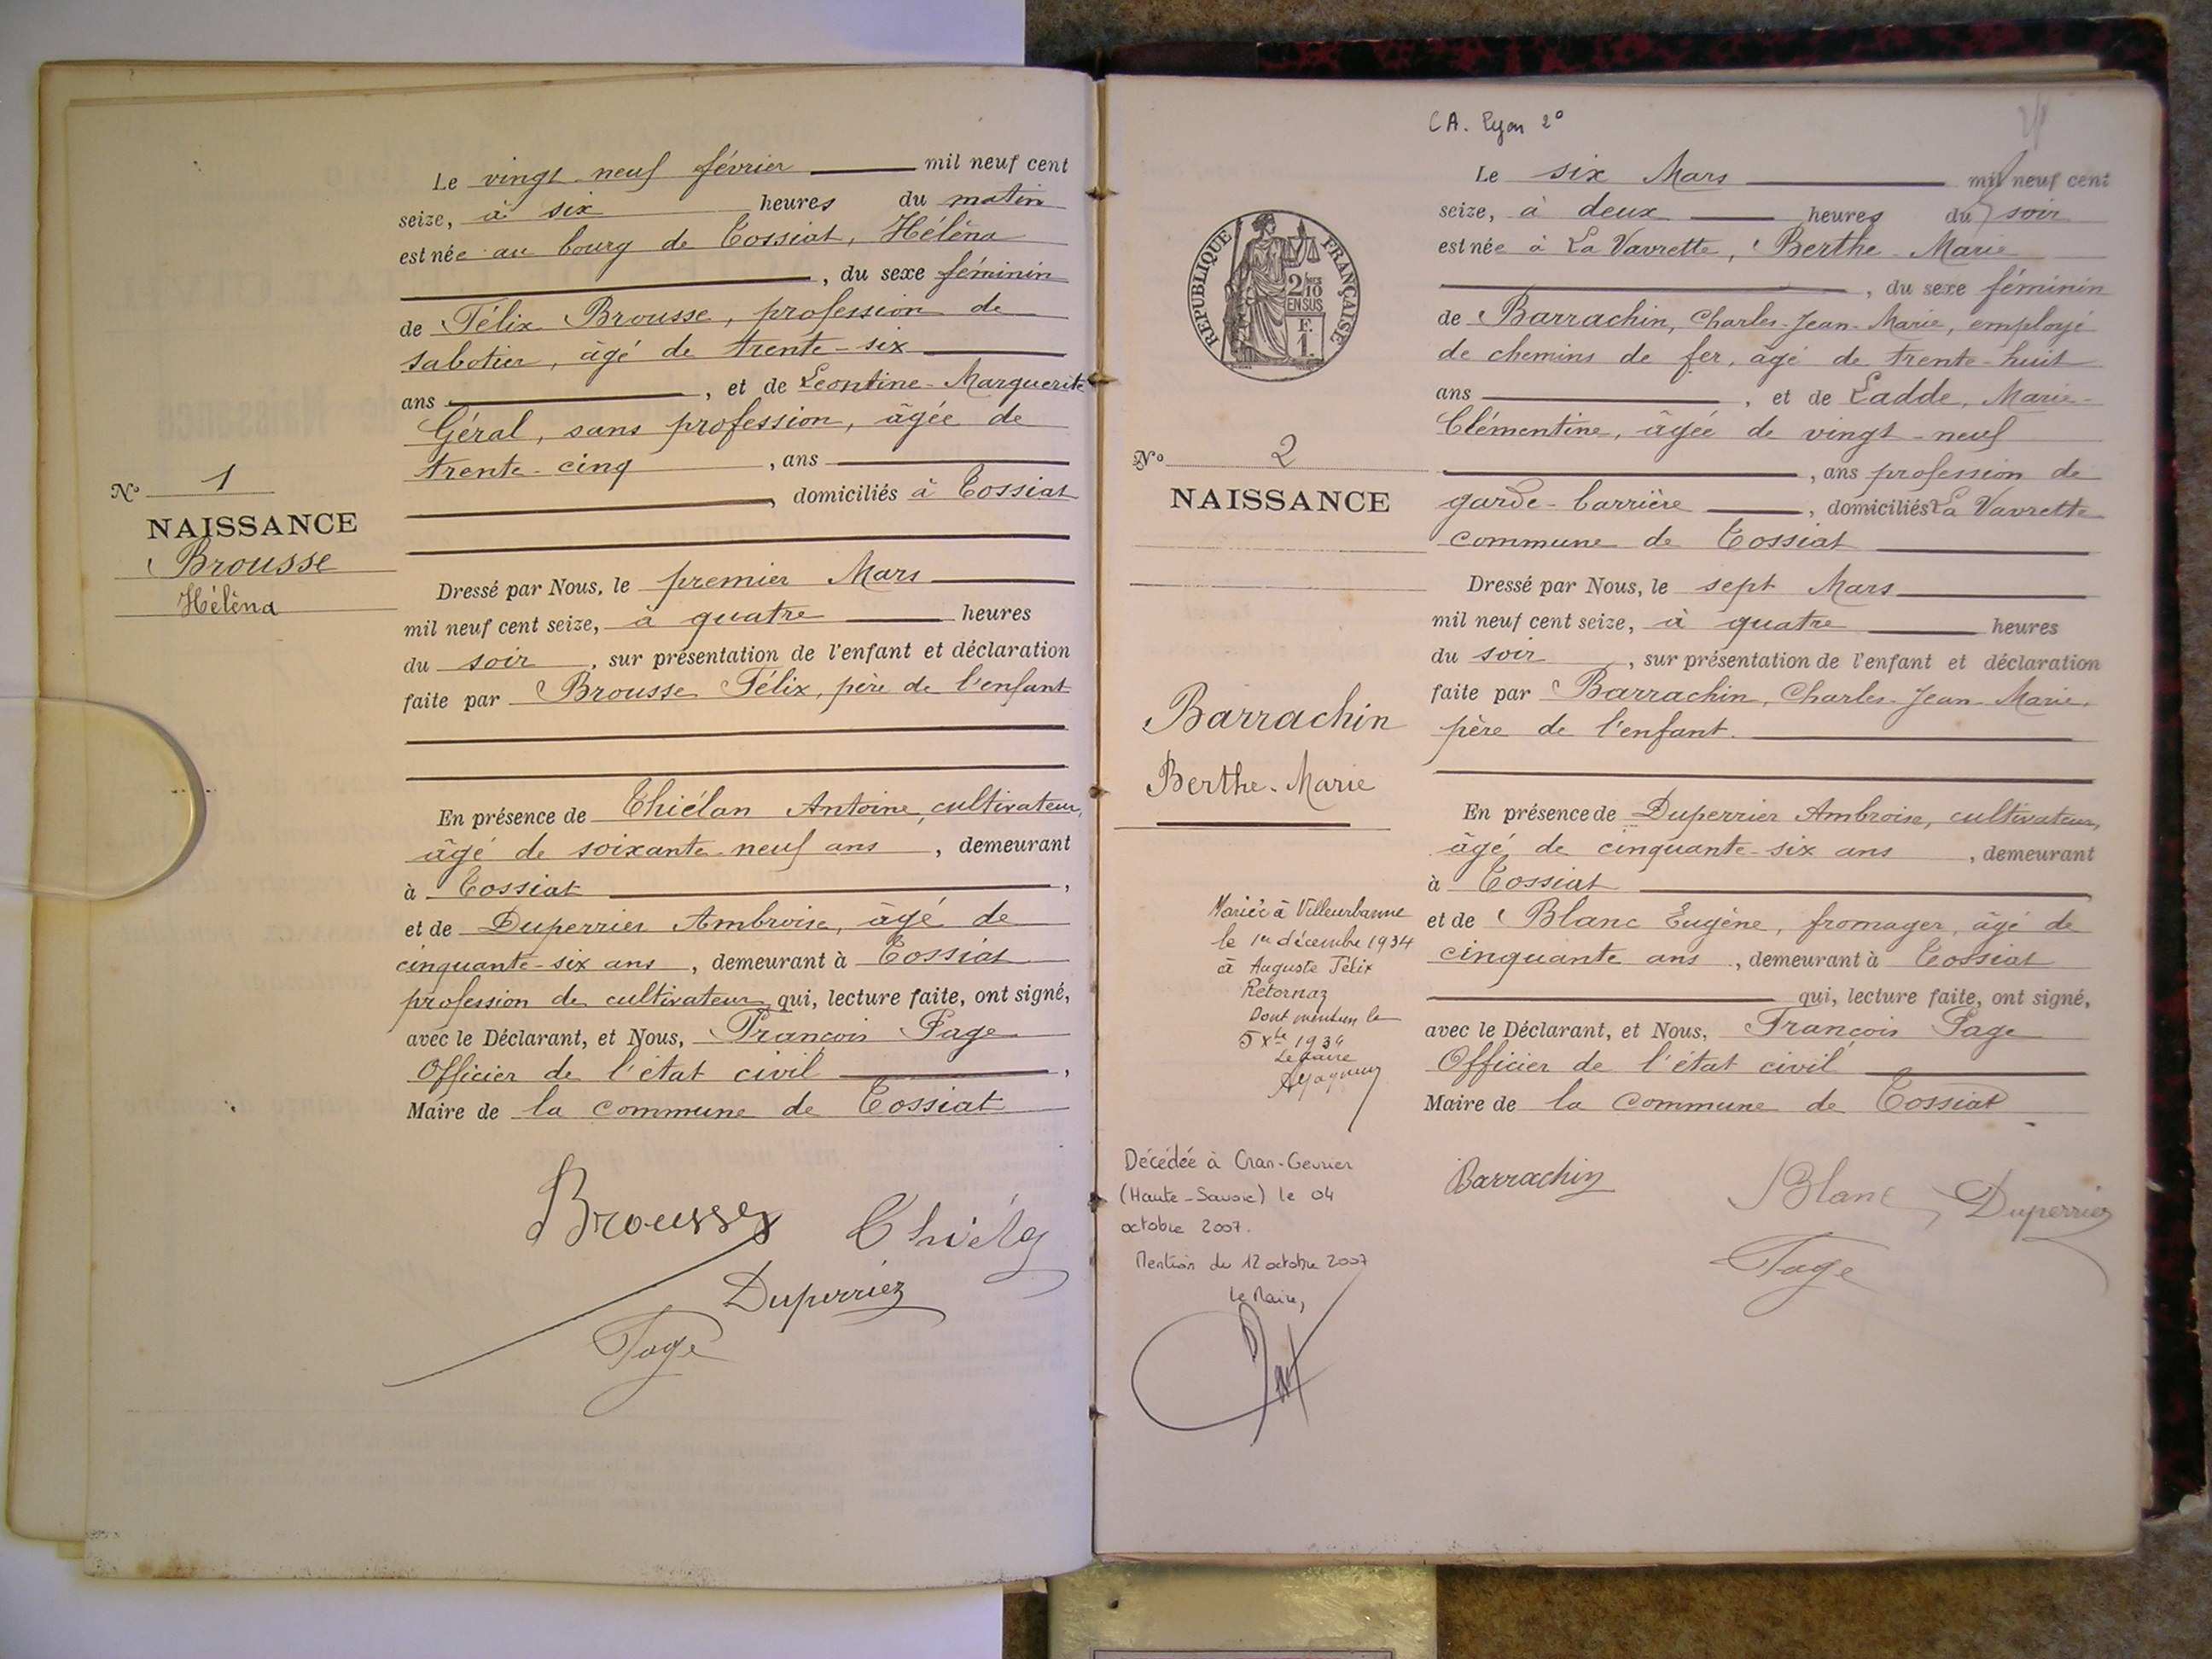 Le vingt neuf février mil neuf cent
seize, à six heures du matin
est née au bourg de Tossiat, Héléna
, du sexe féminin
de Félix Brousse, profession de
sabotier, âgé de trente-six
ans , et de Léontine-Marguerite
Géral, sans profession, âgée de
trente-cinq , ans
, domiciliés à Tossiat
No 1
NAISSANCE
Brousse
Héléna
Dressé par Nous, le premier Mars
mil neuf cent seize, à quatre heures
du soir , sur présentation de l'enfant et déclaration
faite par Brousse Félix, père de l'enfant
En présence de Thiélan Antoine, cultivateur,
âgé de soixante-neuf ans , demeurant
à Tossiat ,
et de Duperrier Ambroise, âgé de
cinquante-six ans , demeurant à Tossiat
profession de cultivateur qui, lecture faite, ont signé,
avec le Déclarant, et Nous, François Page
Officier de l'état civil ,
Maire de la commune de Tossiat
Brousse
Duperrier
Page
CA. Lyon 2°
REPUBLIQUE FRANÇAISE
2/10
EN SUS
F.
1.
Le six Mars mil neuf cent
seize, à deux heures du soir
est née à La Vavrette, Berthe-Marie
, du sexe féminin
de Barrachin, Charles-Jean-Marie, employé
de chemins de fer, âgé de trente-huit
ans , et de Ladde, Marie-
Clémentine, âgée de vingt-neuf
, ans profession de
garde-barrière , domiciliés La Vavrette
commune de Tossiat
No 2
NAISSANCE
Barrachin
Berthe-Marie
Dressé par Nous, le sept Mars
mil neuf cent seize, à quatre heures
du soir , sur présentation de l'enfant et déclaration
faite par Barrachin, Charles-Jean-Marie,
père de l'enfant.
En présence de Duperrier Ambroise, cultivateur,
âgé de cinquante-six ans , demeurant
à Tossiat
et de Blanc Eugène, fromager, âgé de
cinquante ans , demeurant à Tossiat
qui, lecture faite, ont signé,
avec le Déclarant, et Nous, François Page
Officier de l'état civil
Maire de la commune de Tossiat
Mariée à Villeurbanne
le 1er décembre 1934
à Auguste Félix
Rétornaz
Dont mention le
5 Xbre 1934
Le Maire
Décédée à Cran-Gevrier
(Haute-Savoie) le 04
octobre 2007.
Mention du 12 octobre 2007
Le Maire,
Barrachin
Blanc
Duperrier
Page